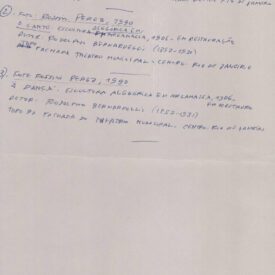 RIO DE JANEIRO
2) FOTO: ROSSINI PEREZ, 1990
O CANTO. ESCULTURA ALEGÓRICA EM ARGAMASSA, 1906. EM RESTAURAÇÃO
AUTOR: RODOLFO BERNARDELLI (1852-1931)
FACHADA THEATRO MUNICIPAL. CENTRO. RIO DE JANEIRO
3) FOTO ROSSINI PEREZ, 1990
A DANÇA. ESCULTURA ALEGÓRICA EM ARGAMASSA, 1906.
EM RESTAURO
AUTOR: RODOLPHO BERNARDELLI (1852-1931)
TOPO DA FACHADA DO THEATRO MUNICIPAL. CENTRO. RIO DE JANEIRO